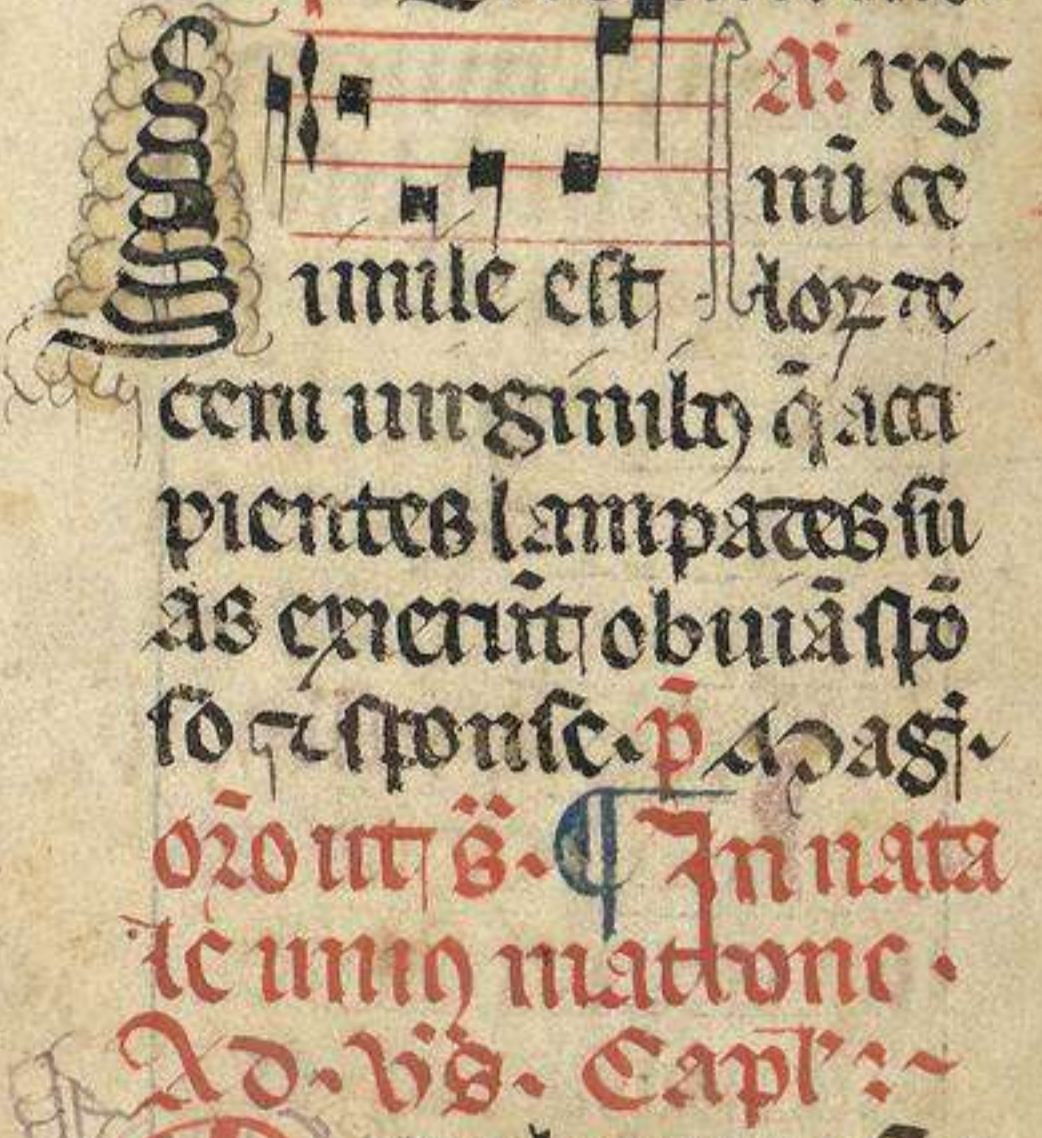 A͞ reg
nū ce
Simile est lorꝝ de
cem uirginibꝫ q̄ acci
pientes lampades su
as exierūt obuiā spō
so ⁊ sponse. p̄ Mag̃.
or̄o ut s̄. ¶ In nata
le uniꝰ matrone.
Ad. v̄s̄. Capl'.